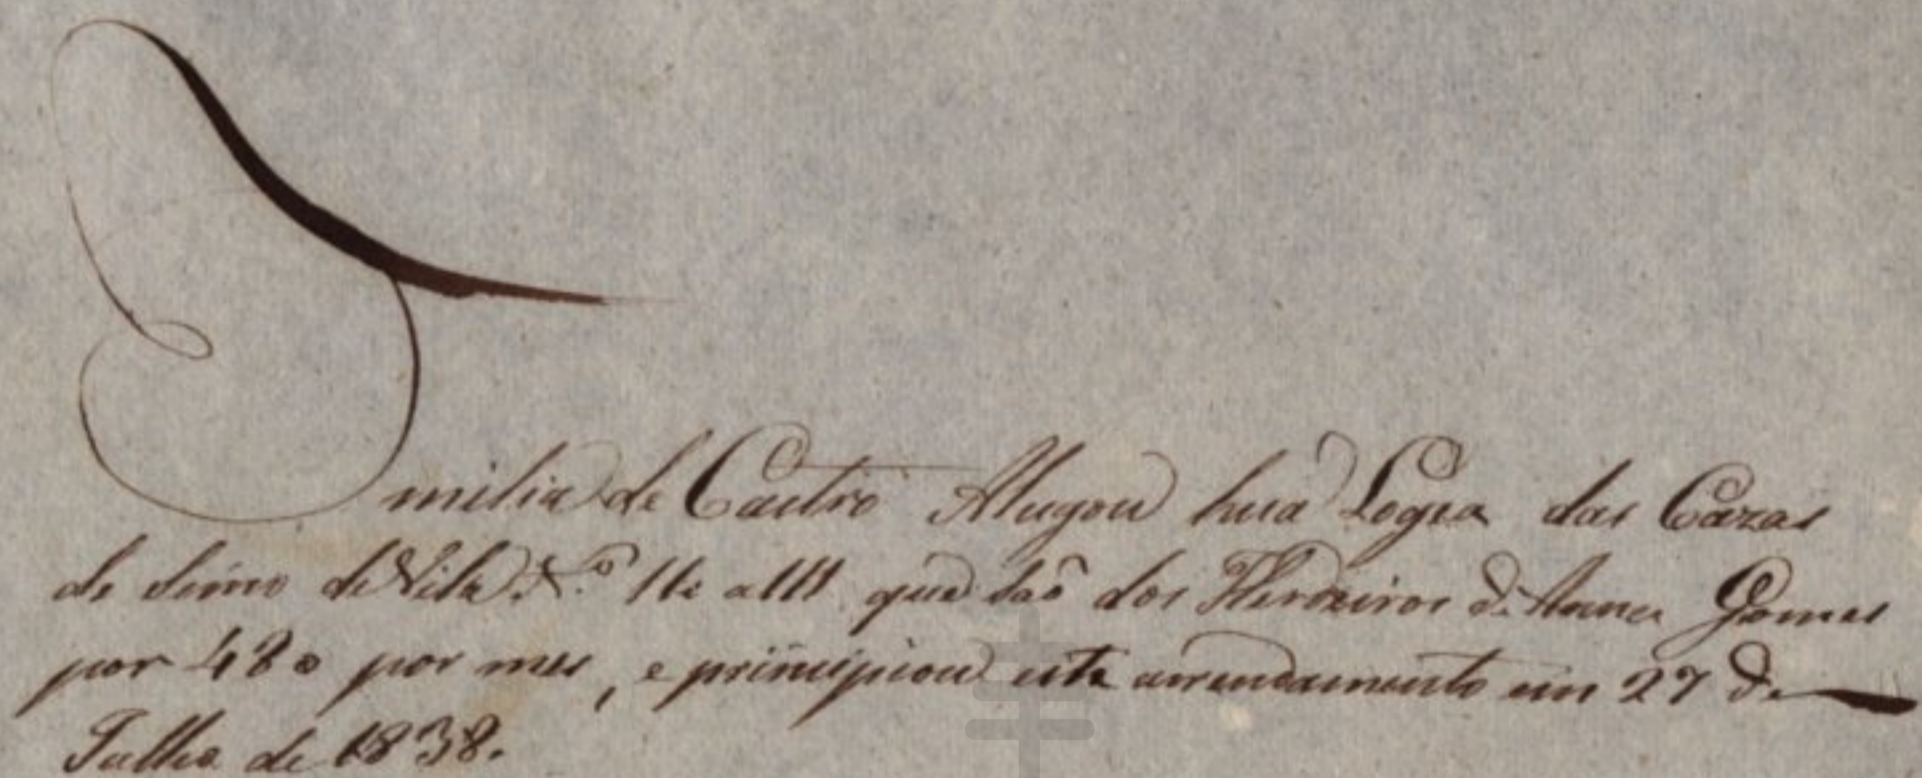 Emilia de Castro Alugou huã Logea das Cazas
de Simo de Vila N.º 11 a 111 que saõ dos Herdeiros de Anna Gomes
por 480 por mes, e principiou este arrendamento em 27 de
Julho de 1838.